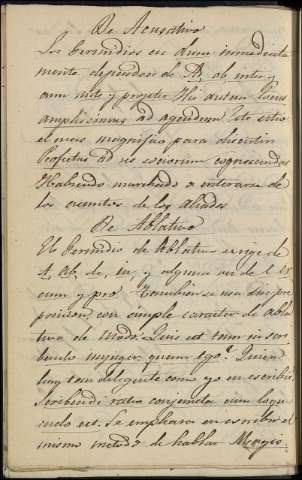 De Acusativo
Los Gerundios en dum inmediata
mente dependen de A, ob, inter y
aun ante y propter Hic autem locus
amplissimus ad agendum Este sitio
el mas magnifico para discutir
Profectus ad res sociorum cognoscendas
Habiendo marchado a enterarse de
los asuntos de los aliados
De Ablativo
El Gerundio de Ablativo se rige de
A, Ab, de, in, y alguna vez de E Ex
cum y pro Tambien se usa sin pre
posicion, con simple caracter de abla
tivo de modo: Quis est tam in scri
bendo impiger, quam ego? Quien
hay tan diligente como yo en escribir
Scribendi ratio conjuncta cum loquendo est. Se emplea en escribir el
mismo metodo de hablar